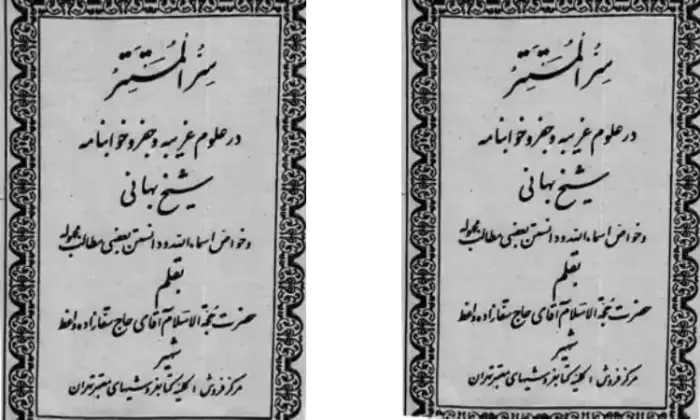 سر المستتر
در علوم غریبه و جفر و خوابنامه
شیخ بهائی
و خواص اسماءالله و دانستن بعضی مطالب مجهوله
بقلم
حضرت حجة الاسلام آقای حاج سقازاده واعظ
شهیر
مرکز فروش : کلیه کتابفروشیهای معتبر تهران
سر المستتر
در علوم غریبه و جفر و خوابنامه
شیخ بهائی
و خواص اسماءالله و دانستن بعضی مطالب مجهوله
بقلم
حضرت حجة الاسلام آقای حاج سقازاده واعظ
شهیر
مرکز فروش : کلیه کتابفروشیهای معتبر تهران